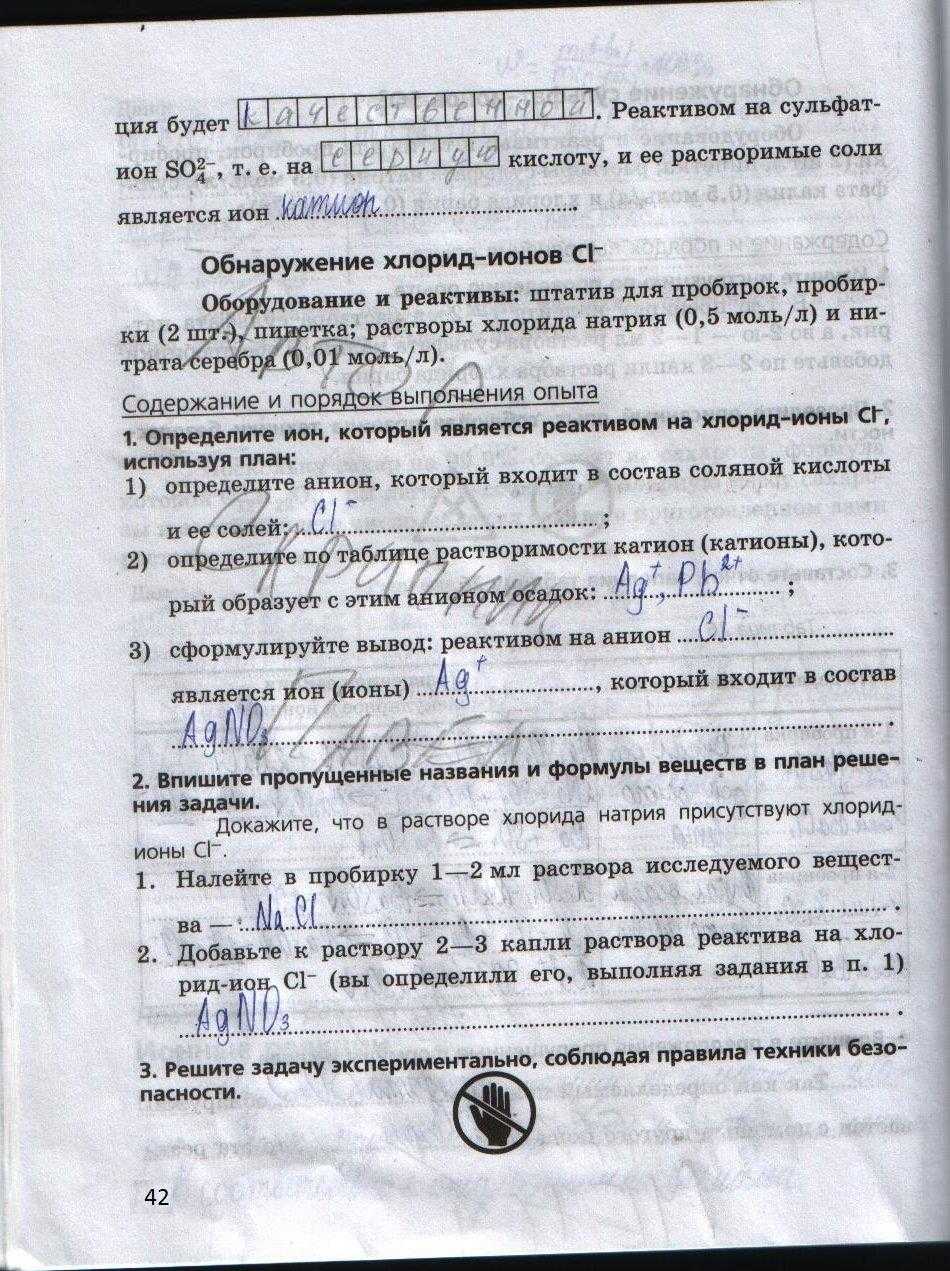 ция будет качественной. Реактивом на сульфат-
ион SO₄²⁻, т. е. на серную кислоту, и ее растворимые соли
является ион катион
Обнаружение хлорид-ионов Cl⁻
Оборудование и реактивы: штатив для пробирок, пробир-
ки (2 шт.), пипетка; растворы хлорида натрия (0,5 моль/л) и ни-
трата серебра (0,01 моль/л).
Содержание и порядок выполнения опыта
1. Определите ион, который является реактивом на хлорид-ионы Cl⁻,
используя план:
1) определите анион, который входит в состав соляной кислоты
и ее солей: Cl⁻ ;
2) определите по таблице растворимости катион (катионы), кото-
рый образует с этим анионом осадок: Ag⁺, Pb²⁺ ;
3) сформулируйте вывод: реактивом на анион Cl⁻
является ион (ионы) Ag⁺, который входит в состав
AgNO₃.
2. Впишите пропущенные названия и формулы веществ в план реше-
ния задачи.
Докажите, что в растворе хлорида натрия присутствуют хлорид-
ионы Cl⁻.
1. Налейте в пробирку 1—2 мл раствора исследуемого вещест-
ва — NaCl.
2. Добавьте к раствору 2—3 капли раствора реактива на хло-
рид-ион Cl⁻ (вы определили его, выполняя задания в п. 1)
AgNO₃.
3. Решите задачу экспериментально, соблюдая правила техники безо-
пасности.
42